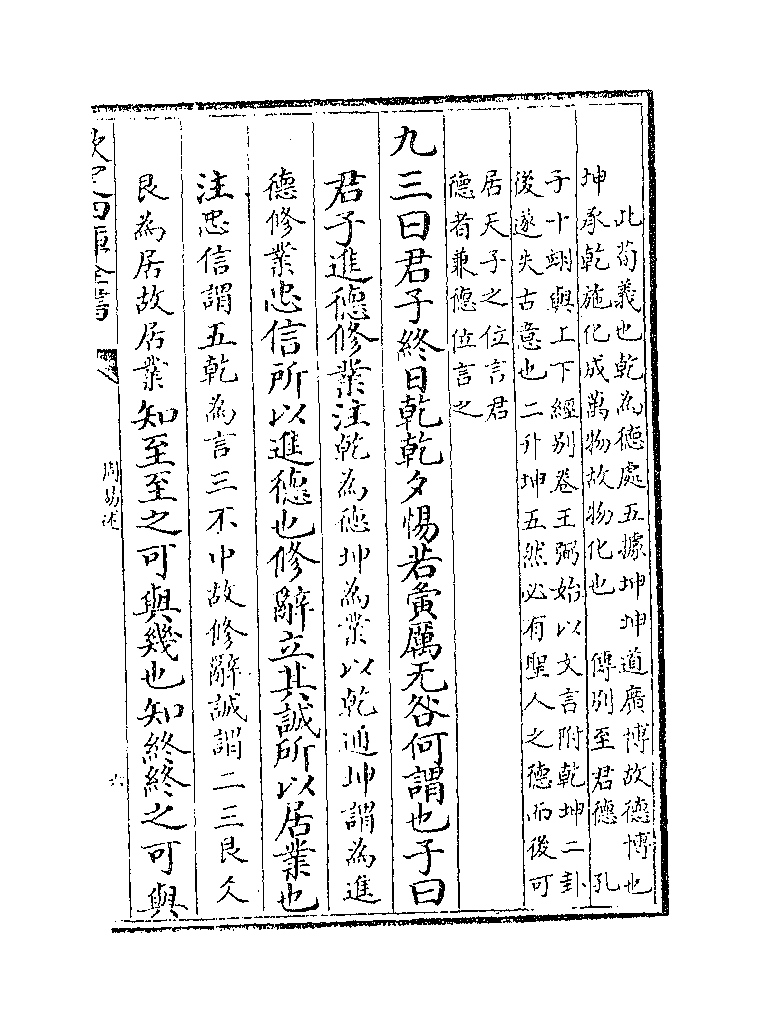 此荀義也乾為德處五據坤坤道廣博故德博也
坤承乾施化成萬物故物化也　傳别至君德　孔
子十翊與上下經别卷王弼始以文言附乾坤二卦
後遂失古意也二升坤五然必有聖人之德而後可
居天子之位言君
德者兼德位言之
九三曰君子終日乾乾夕惕若夤厲无咎何謂也子曰
君子進德修業注乾為德坤為業以乾通坤謂為進
德修業忠信所以進德也修辭立其誠所以居業也
注忠信謂五乾為言三不中故修辭誠謂二三艮爻
艮為居故居業知至至之可與幾也知終終之可與
欽定四庫全書
周易述
六